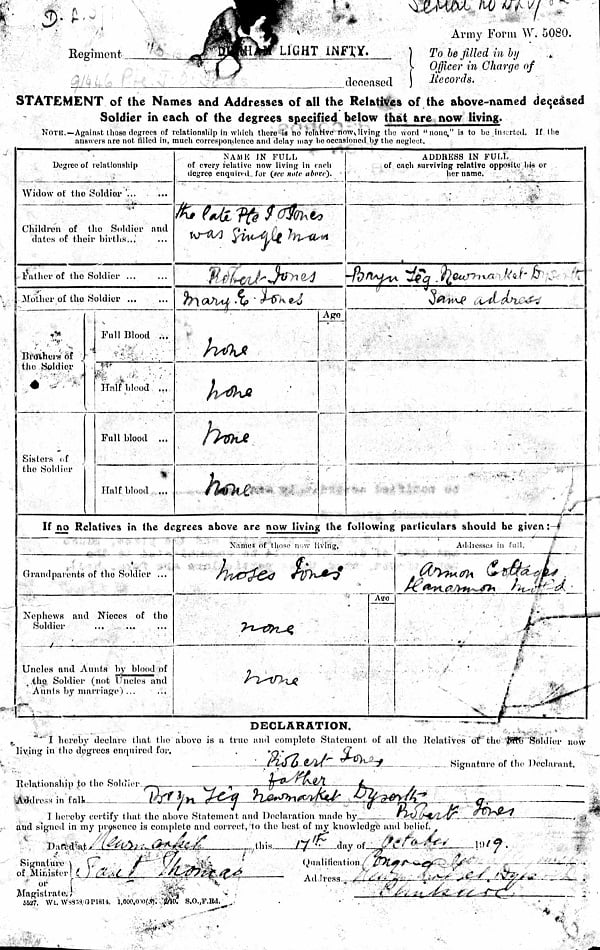 D. L.
Serial no
Army Form W. 5080.
Regiment DURHAM LIGHT INFTY.
To be filled in by
Officer in Charge of
Records.
deceased
STATEMENT of the Names and Addresses of all the Relatives of the above-named deceased
Soldier in each of the degrees specified below that are now living.
NOTE.—Against those degrees of relationship in which there is no relative now living the word "none," is to be inserted. If the
answers are not filled in, much correspondence and delay may be occasioned by the neglect.
Degree of relationship
NAME IN FULL
of every relative now living in each
degree enquired for (see note above).
ADDRESS IN FULL
of each surviving relative opposite his or
her name.
Widow of the Soldier ... ...
Children of the Soldier and
dates of their births... ...
the late Pte J O Jones
was Single man
Father of the Soldier ... ... Robert Jones Bryn Têg Newmarket Dyserth
Mother of the Soldier ... ... Mary E Jones Same address
Age
Brothers of
the Soldier
Full Blood ... none
Half blood ... none
Sisters of
the Soldier
Full blood ... None
Half blood ... None
If no Relatives in the degrees above are now living the following particulars should be given:—
Names of those now living. Addresses in full.
Grandparents of the Soldier ... Moses Jones Armon Cottages
Llanarmon Mold
Age
Nephews and Nieces of the
Soldier ... ... ... none
Uncles and Aunts by blood of
the Soldier (not Uncles and
Aunts by marriage) ... ...
none
DECLARATION.
I hereby declare that the above is a true and complete Statement of all the Relatives of the late Soldier now
living in the degrees enquired for.
Robert Jones Signature of the Declarant.
Relationship to the Soldier father
Address in full Bryn Têg Newmarket Dyserth
I hereby certify that the above Statement and Declaration made by Robert Jones
and signed in my presence is complete and correct, to the best of my knowledge and belief.
Dated at Newmarket this 17th day of October 1919.
Signature
of Minister
or
Magistrate.
Thomas
Qualification
Address
Flintshire
5527. Wt. W8859/GP1814. 1,000,000(8). 2/19. S.O., F.Rd.